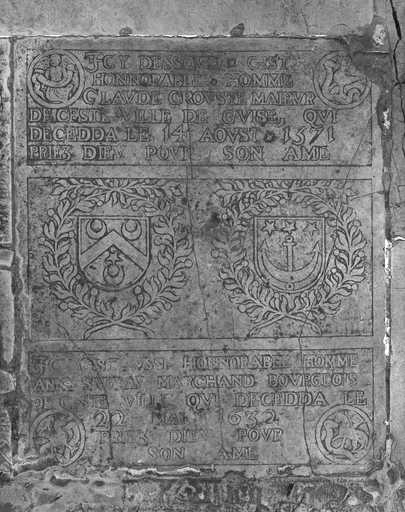 ICY DESSOVS GIST
HONNORABLE HOMME
CLAVDE CROVSTE MAIEVR
DE CESTE VILLE DE GVISE, QVI
DECEDDA LE 14 AOVST 1571
PRIEZ DIEV POVR SON AME
GIST AVSSI HONNORABLE HOMME
MARCHAND BOVRGEOIS
VILLE QVI DECEDDA LE
22 MAI 1632
PRIEZ DIEV POVR
SON AME